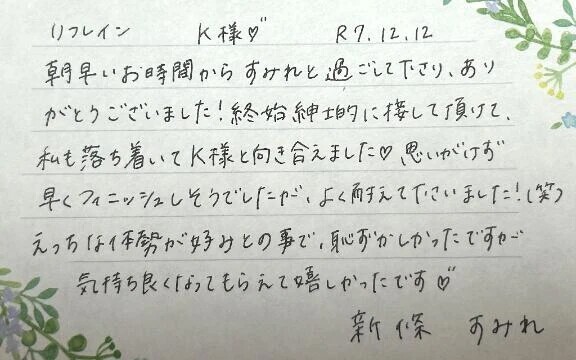 リフレイン K様♡ R7.12.12
朝早いお時間からすみれと過ごして下さり、あり
がとうございました！終始紳士的に接して頂けて、
私も落ち着いてK様と向き合えました♡思いがけず
早くフィニッシュしそうでしたが、よく耐えて下さいました！(笑)
えっちな体勢が好みとの事で、恥ずかしかったですが
気持ち良くなってもらえて嬉しかったです♡
新條 すみれ